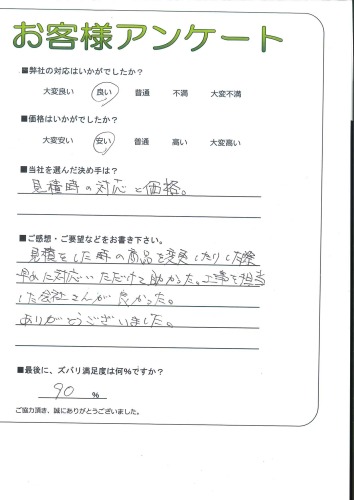 お客様アンケート
■弊社の対応はいかがでしたか？
大変良い 良い 普通 不満 大変不満
■価格はいかがでしたか？
大変安い 安い 普通 高い 大変高い
■当社を選んだ決め手は？
見積時の対応と価格。
■ご感想・ご要望などをお書き下さい。
見積をした時の商品を変更したりした際
早めに対応いただけて助かった。工事を担当
した会社さんが良かった。
ありがとうございました。
■最後に、ズバリ満足度は何％ですか？
90 ％
ご協力頂き、誠にありがとうございました。